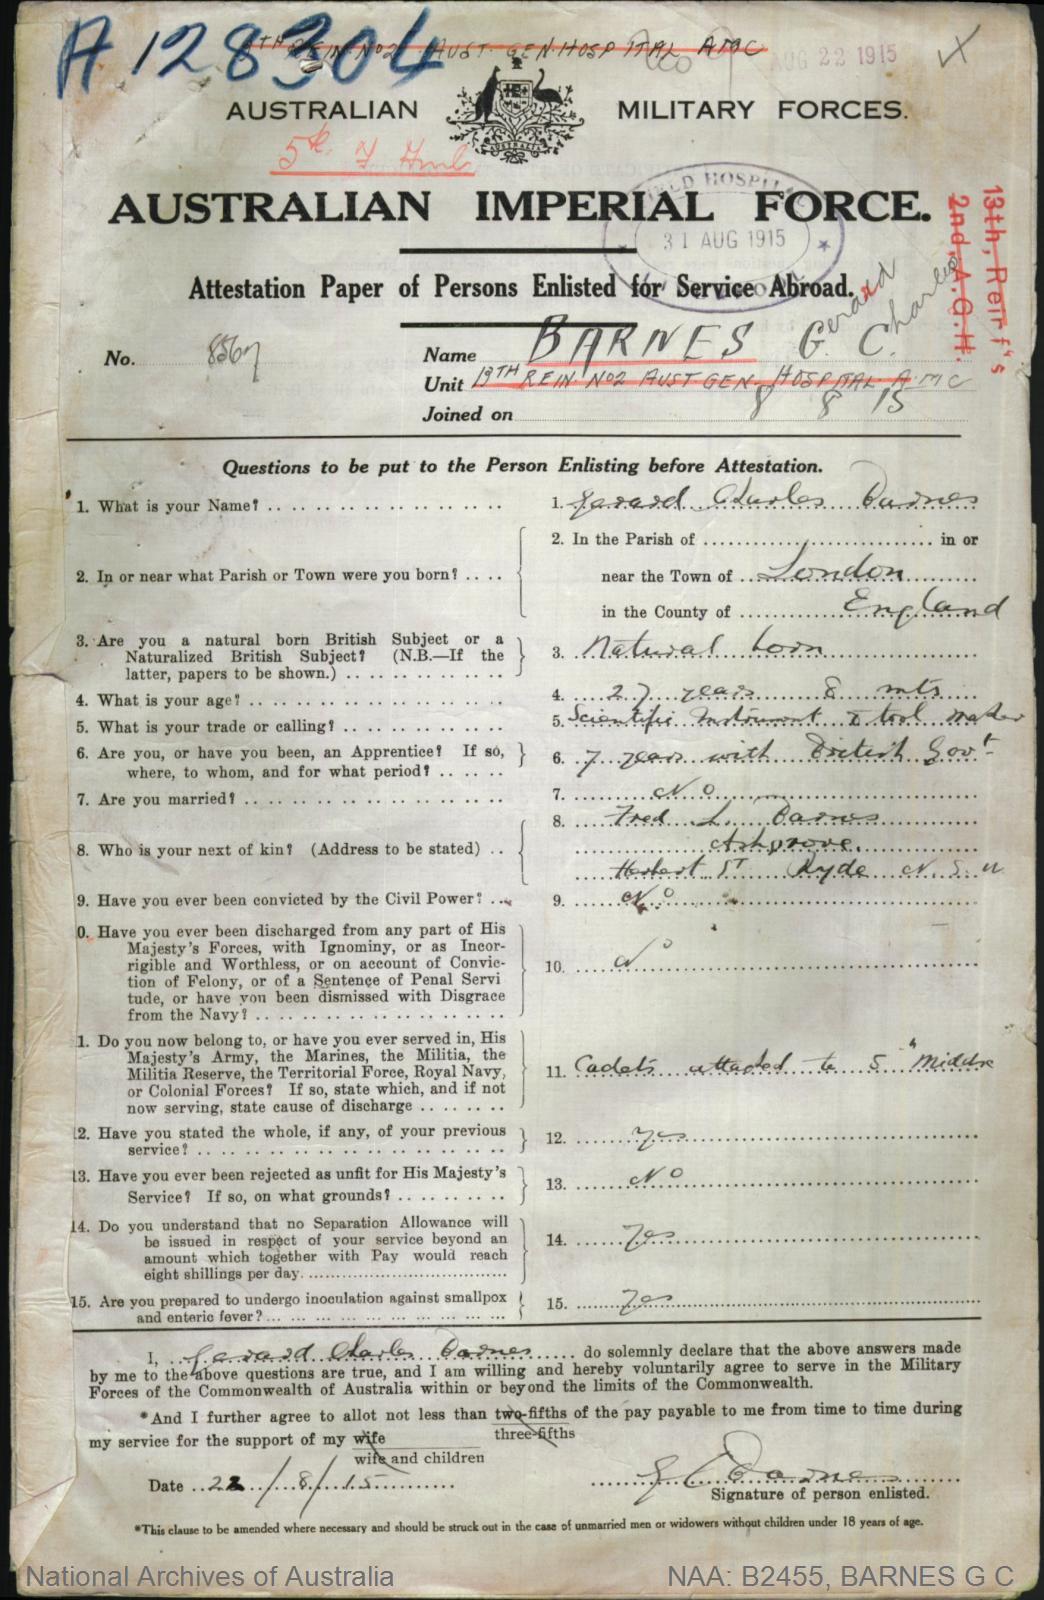 A128304
TH REIN. No2 AUST. GEN. HOSPITAL AMC
AUG 22 1915
AUSTRALIAN MILITARY FORCES.
AUSTRALIA
AUSTRALIAN IMPERIAL FORCE.
FIELD HOSPITAL
31 AUG 1915
13th, Reinf's
2nd A.G.H.
Attestation Paper of Persons Enlisted for Service Abroad.
No. 8567
Name BARNES Gerard Charles
Unit 13TH REIN. No2 AUST GEN. HOSPITAL A.M.C
Joined on 8 8 15
Questions to be put to the Person Enlisting before Attestation.
1. What is your Name? 1. Gerard Charles Barnes
2. In or near what Parish or Town were you born? 2. In the Parish of in or
near the Town of London
in the County of England
3. Are you a natural born British Subject or a
Naturalized British Subject? (N.B.—If the
latter, papers to be shown.) 3. Natural born
4. What is your age? 4. 27 years 8 mts
5. What is your trade or calling? 5. Scientific Instrument & tool maker
6. Are you, or have you been, an Apprentice? If so,
where, to whom, and for what period? 6. 7 years with British Govt
7. Are you married? 7. No
8. Who is your next of kin? (Address to be stated) 8. Fred L. Barnes
Ashgrove.
Herbert St Ryde N.S.W
9. Have you ever been convicted by the Civil Power? 9. No
0. Have you ever been discharged from any part of His
Majesty's Forces, with Ignominy, or as Incor-
rigible and Worthless, or on account of Convic-
tion of Felony, or of a Sentence of Penal Servi
tude, or have you been dismissed with Disgrace
from the Navy? 10. No
1. Do you now belong to, or have you ever served in, His
Majesty's Army, the Marines, the Militia, the
Militia Reserve, the Territorial Force, Royal Navy,
or Colonial Forces? If so, state which, and if not
now serving, state cause of discharge 11. Cadets attached to 5" Middsx
12. Have you stated the whole, if any, of your previous
service? 12. Yes
13. Have you ever been rejected as unfit for His Majesty's
Service? If so, on what grounds? 13. No
14. Do you understand that no Separation Allowance will
be issued in respect of your service beyond an
amount which together with Pay would reach
eight shillings per day. 14. Yes
15. Are you prepared to undergo inoculation against smallpox
and enteric fever? 15. Yes
I, Gerard Charles Barnes do solemnly declare that the above answers made
by me to the above questions are true, and I am willing and hereby voluntarily agree to serve in the Military
Forces of the Commonwealth of Australia within or beyond the limits of the Commonwealth.
*And I further agree to allot not less than two-fifths of the pay payable to me from time to time during
three-fifths
my service for the support of my wife
wife and children
Date 22/8/15 G C Barnes
Signature of person enlisted.
*This clause to be amended where necessary and should be struck out in the case of unmarried men or widowers without children under 18 years of age.
National Archives of Australia NAA: B2455, BARNES G C